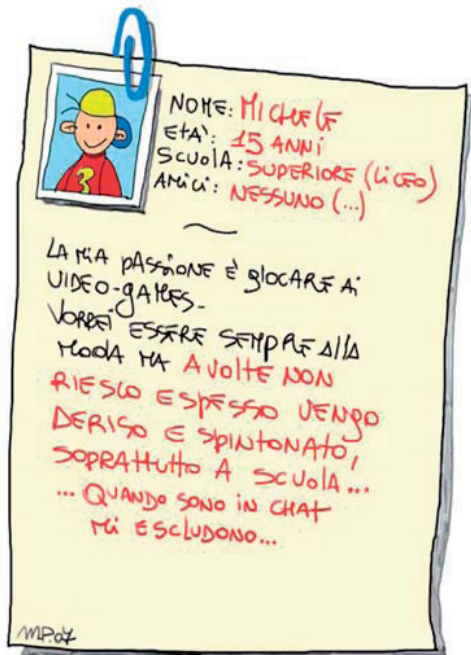 NOME: MICHELE
ETÀ: 15 ANNI
SCUOLA: SUPERIORE (LICEO)
AMICI: NESSUNO (...)
LA MIA PASSIONE È GIOCARE AI
VIDEO-GAMES-
VORREI ESSERE SEMPRE ALLA
MODA MA A VOLTE NON
RIESCO E SPESSO VENGO
DERISO E SPINTONATO,
SOPRATTUTTO A SCUOLA...
... QUANDO SONO IN CHAT
MI ESCLUDONO...
3
MP.07